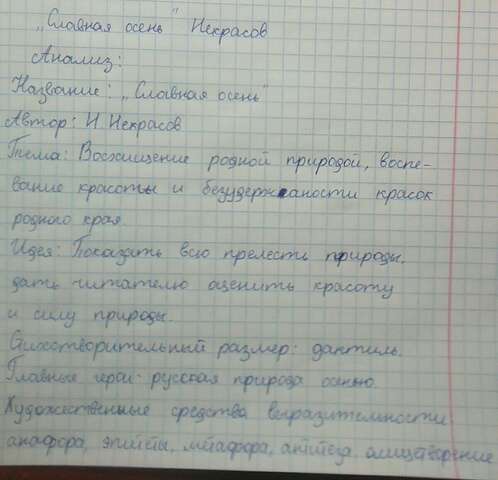 „Славная осень" Некрасов
Анализ:
Название: „Славная осень"
Автор: Н. Некрасов
Тема: Восхищение родной природой, воспе-
вание красоты и безудержаности красок
родного края.
Идея: Показать всю прелесть природы.
дать читателю оценить красоту
и силу природы.
Стихотворительный размер: дактиль.
Главные герои: русская природа осенью.
Художественные средства выразительности
анафора, эпитеты, метафора, антитеза, олицетворение